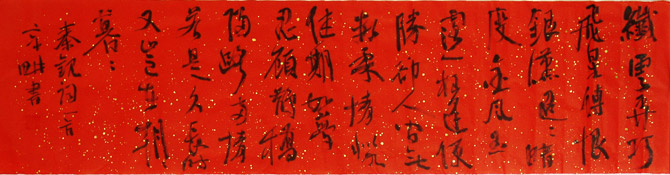 纖雲弄巧
飛星傳恨
銀漢迢〻暗
度金風玉
露一相逢便
勝卻人間無
數柔情似水
佳期如夢
忍顧鵲橋
歸路兩情
若是久長時
又豈在朝
暮〻
秦觀詞一首
書